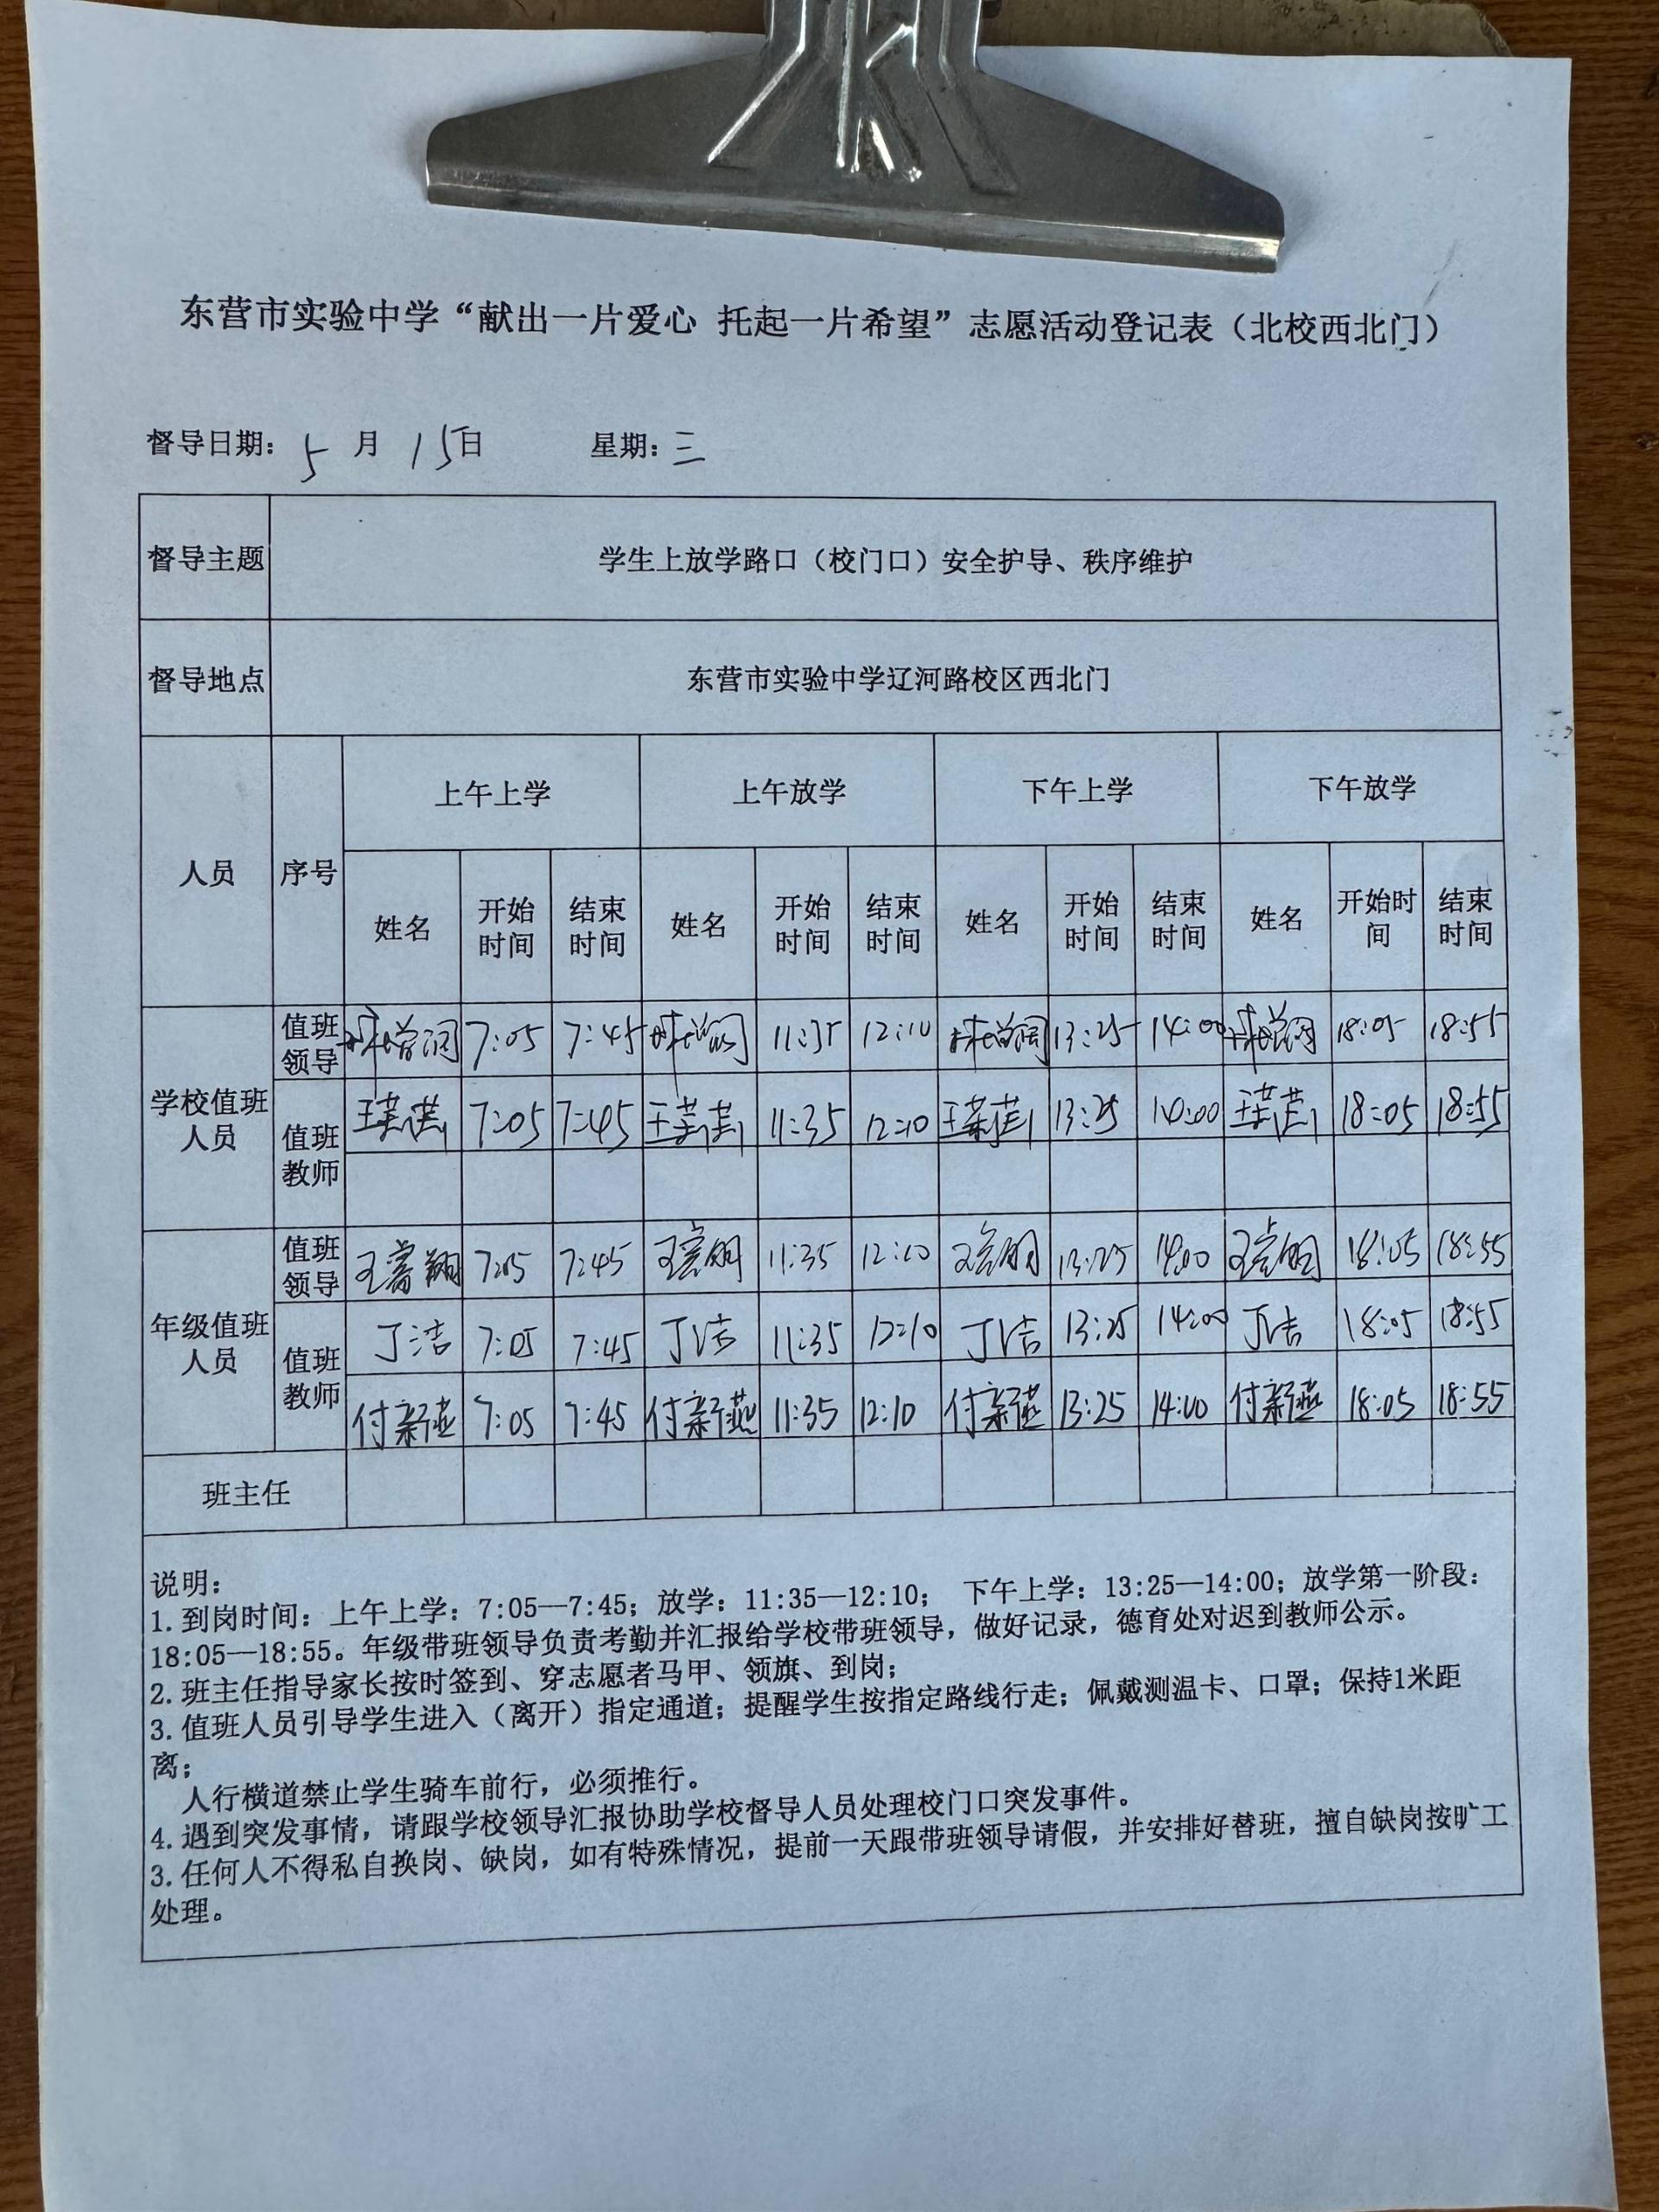 东营市实验中学“献出一片爱心 托起一片希望”志愿活动登记表（北校西北门）
督导日期：5月15日 星期：三
督导主题 学生上放学路口（校门口）安全护导、秩序维护
督导地点 东营市实验中学辽河路校区西北门
人员 序号 上午上学 上午放学 下午上学 下午放学
姓名 开始时间 结束时间 姓名 开始时间 结束时间 姓名 开始时间 结束时间 姓名 开始时间 结束时间
学校值班人员 值班领导 7:05 7:45 11:35 12:10 13:25 14:00 18:05 18:55
值班教师 7:05 7:45 11:35 12:10 13:25 14:00 18:05 18:55
年级值班人员 值班领导 7:05 7:45 11:35 12:10 13:25 14:00 18:05 18:55
值班教师 丁洁 7:05 7:45 丁洁 11:35 12:10 丁洁 13:25 14:00 丁洁 18:05 18:55
付新燕 7:05 7:45 付新燕 11:35 12:10 付新燕 13:25 14:00 付新燕 18:05 18:55
班主任
说明：
1.到岗时间：上午上学：7:05—7:45；放学：11:35—12:10； 下午上学：13:25—14:00；放学第一阶段：
18:05—18:55。年级带班领导负责考勤并汇报给学校带班领导，做好记录，德育处对迟到教师公示。
2.班主任指导家长按时签到、穿志愿者马甲、领旗、到岗；
3.值班人员引导学生进入（离开）指定通道；提醒学生按指定路线行走；佩戴测温卡、口罩；保持1米距
离；
人行横道禁止学生骑车前行，必须推行。
4.遇到突发事情，请跟学校领导汇报协助学校督导人员处理校门口突发事件。
3.任何人不得私自换岗、缺岗，如有特殊情况，提前一天跟带班领导请假，并安排好替班，擅自缺岗按旷工
处理。